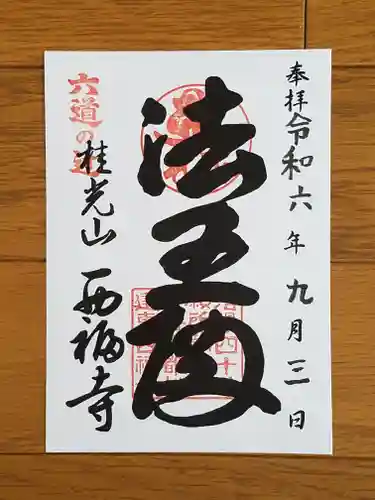 奉拝 令和六年 九月三日
法王殿
六道の辻
桂光山 西福寺